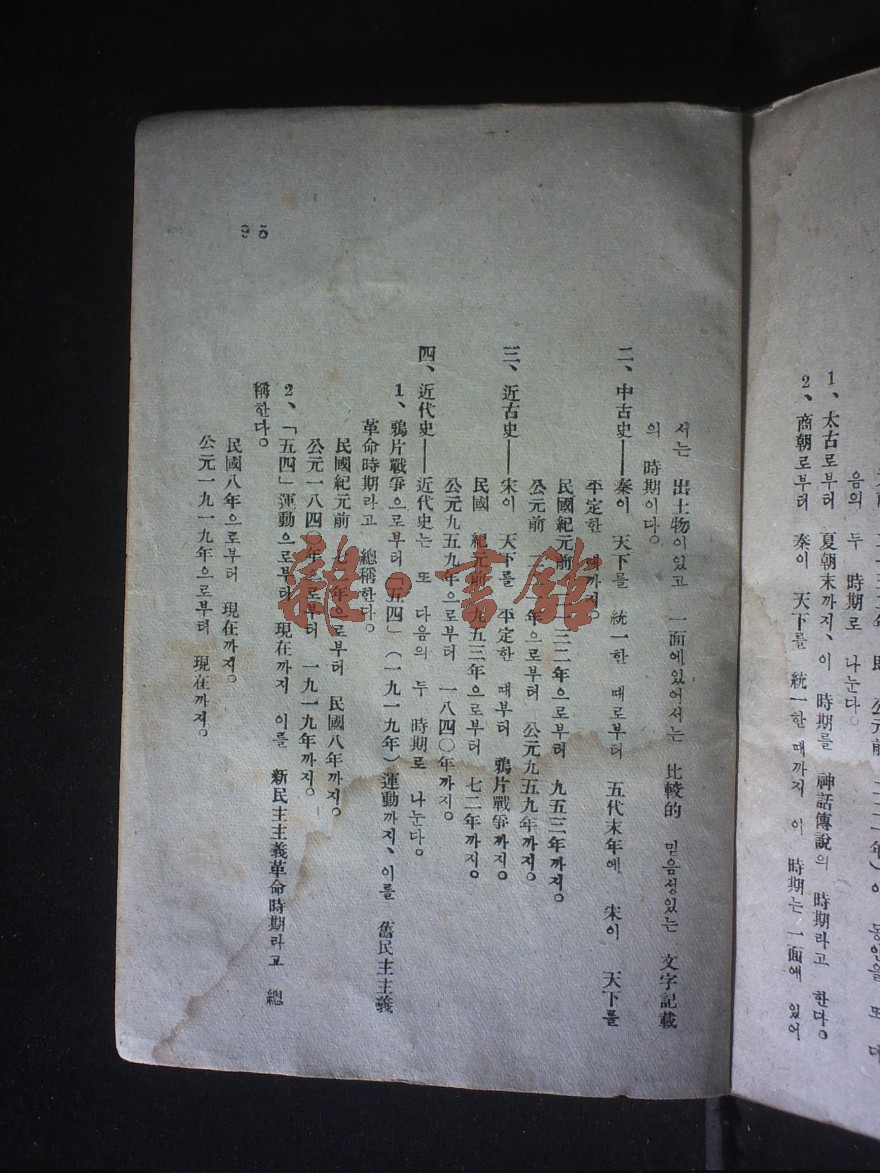 1、太古로부터 夏朝末까지、이 時期를 神話傳說의 時期라고 한다。
2、商朝로부터 秦이 天下를 統一한 때까지 이 時期는 一面에 있어
음의 두 時期로 나눈다。
서는 出土物이있고 一面에있어서는 比較的 믿음성있는 文字記載
의 時期이다。
二、中古史——秦이 天下를 統一한 때로부터 五代末年에 宋이 天下를
平定한 때까지。
民國紀元前 二一三二年으로부터 九五三年까지。
公元前 年으로부터 公元九五九年까지。
三、近古史——宋이 天下를 平定한 때부터 鴉片戰爭까지。
民國 紀元前 九五三年으로부터 七二年까지。
公元九五九年으로부터 一八四〇年까지。
四、近代史——近代史는 또 다음의 두 時期로 나눈다。
1、鴉片戰爭으로부터「五四」(一九一九年)運動까지、이를 舊民主主義
革命時期라고 總稱한다。
民國紀元前 七 年으로부터 民國八年까지。
公元一八四〇年으로부터 一九一九年까지。
2、「五四」運動으로부터 現在까지 이를 新民主主義革命時期라고 總
稱한다。
民國八年으로부터 現在까지。
公元一九一九年으로부터 現在까지。
95
龍·書館